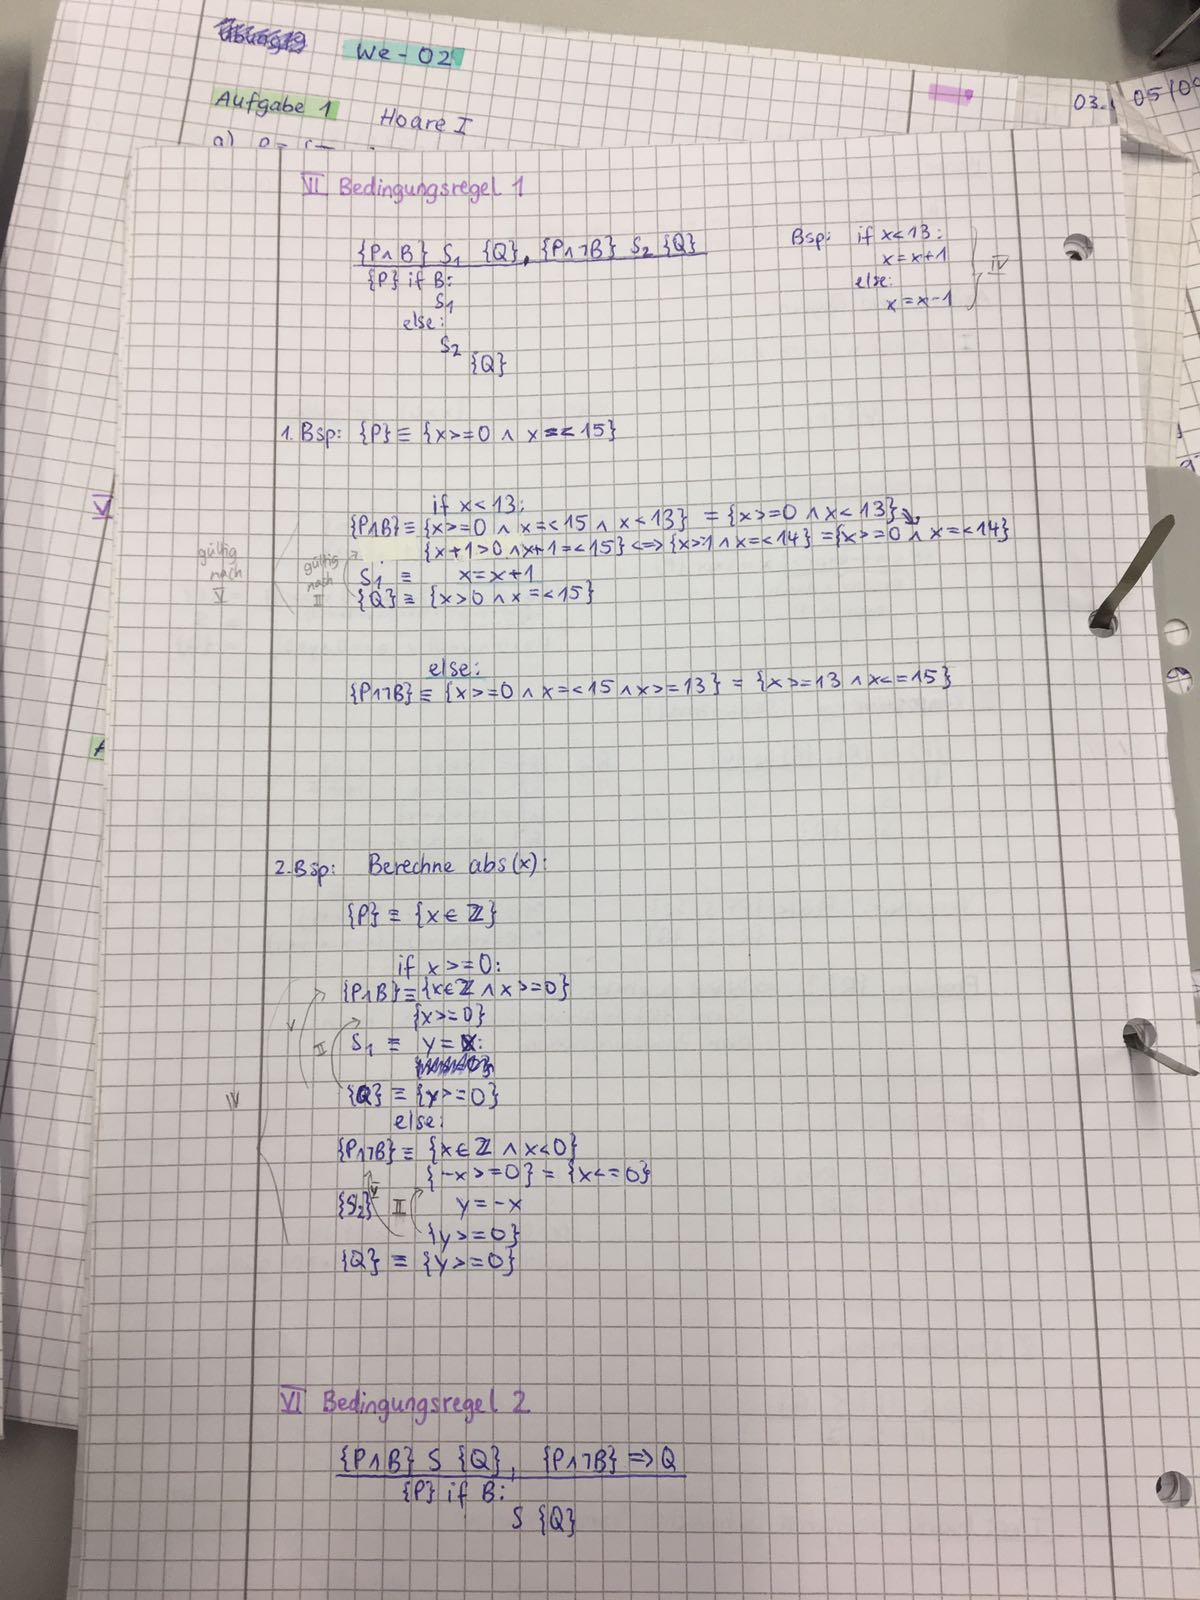 We-02
Aufgabe 1 Hoare I
a)
03. 05/09
VI Bedingungsregel 1
{P∧B} S₁ {Q}, {P∧¬B} S₂ {Q}
{P} if B:
S₁
else:
S₂
{Q}
Bsp: if x<13:
x=x+1
else:
x=x-1
IV
1. Bsp: {P} ≡ {x>=0 ∧ x=<15}
V
if x<13:
{P∧B} ≡ {x>=0 ∧ x=<15 ∧ x<13} = {x>=0 ∧ x<13}
{x+1>0 ∧ x+1=<15} <=> {x>-1 ∧ x=<14} = {x>=0 ∧ x=<14}
S₁ ≡ x=x+1
{Q} ≡ {x>0 ∧ x=<15}
gültig nach V
gültig nach II
else:
{P∧¬B} ≡ {x>=0 ∧ x=<15 ∧ x>=13} = {x>=13 ∧ x<=15}
A
2. Bsp: Berechne abs(x):
{P} ≡ {x∈ℤ}
if x>=0:
{P∧B} ≡ {x∈ℤ ∧ x>=0}
{x>=0}
V II S₁ ≡ y=x:
{Q} ≡ {y>=0}
IV
else:
{P∧¬B} ≡ {x∈ℤ ∧ x<0}
{-x>=0} = {x<=0}
{S₂} V II y=-x
{y>=0}
{Q} ≡ {y>=0}
VI Bedingungsregel 2
{P∧B} S {Q}, {P∧¬B} => Q
{P} if B:
S {Q}